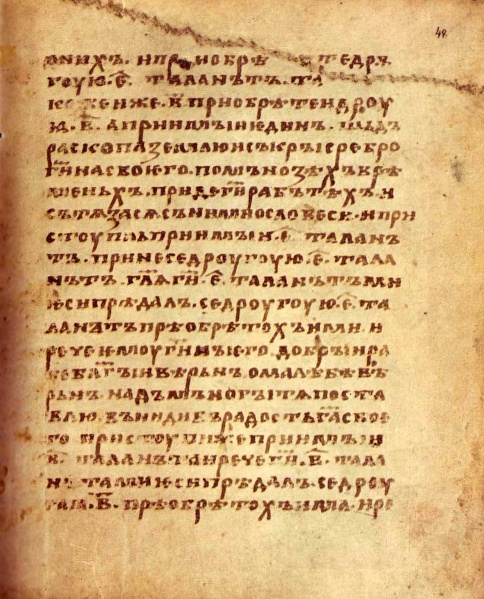 48
ониxъ. и приобрѣ тедрꙋ
гоую. е҃. таланътъ. та
кожеиже. в҃ приобрѣте и дроу
в҃. а приимꙑи ѥдинъ. шьдъ
раскопа землю и съкрꙑ сребро
г҃на своѥго. по мъноѕѣхъ врѣ
меньхъ. приде г҃нъ рабъ тѣхъ. и
сътѧза сѧ съ ними о словеси. и при
стоупль приимꙑи. е҃. талан
тъ. принесе дроугоую. е҃. тала
нътъ. гл҃ѧ г҃и. е҃. таланътъ ми
ѥси прѣдалъ. се дроугоую. е҃. та
ланътъ приобрѣтохъ ими. и
рече ѥмоу г҃нъ ѥго. добрꙑи ра
бе бл҃гꙑи и вѣрьне. о малѣ бѣ вѣ
рьнъ. надъ мъногꙑ тѧ поста
влю. въниди въ радость г҃а своѥ
го. пристоупь же приимꙑи
в҃. таланъта и рече г҃и. в҃. тала
нъта ми ѥси прѣдалъ. се дроу
гаꙗ. в҃. приобрѣтохъ има. и ре